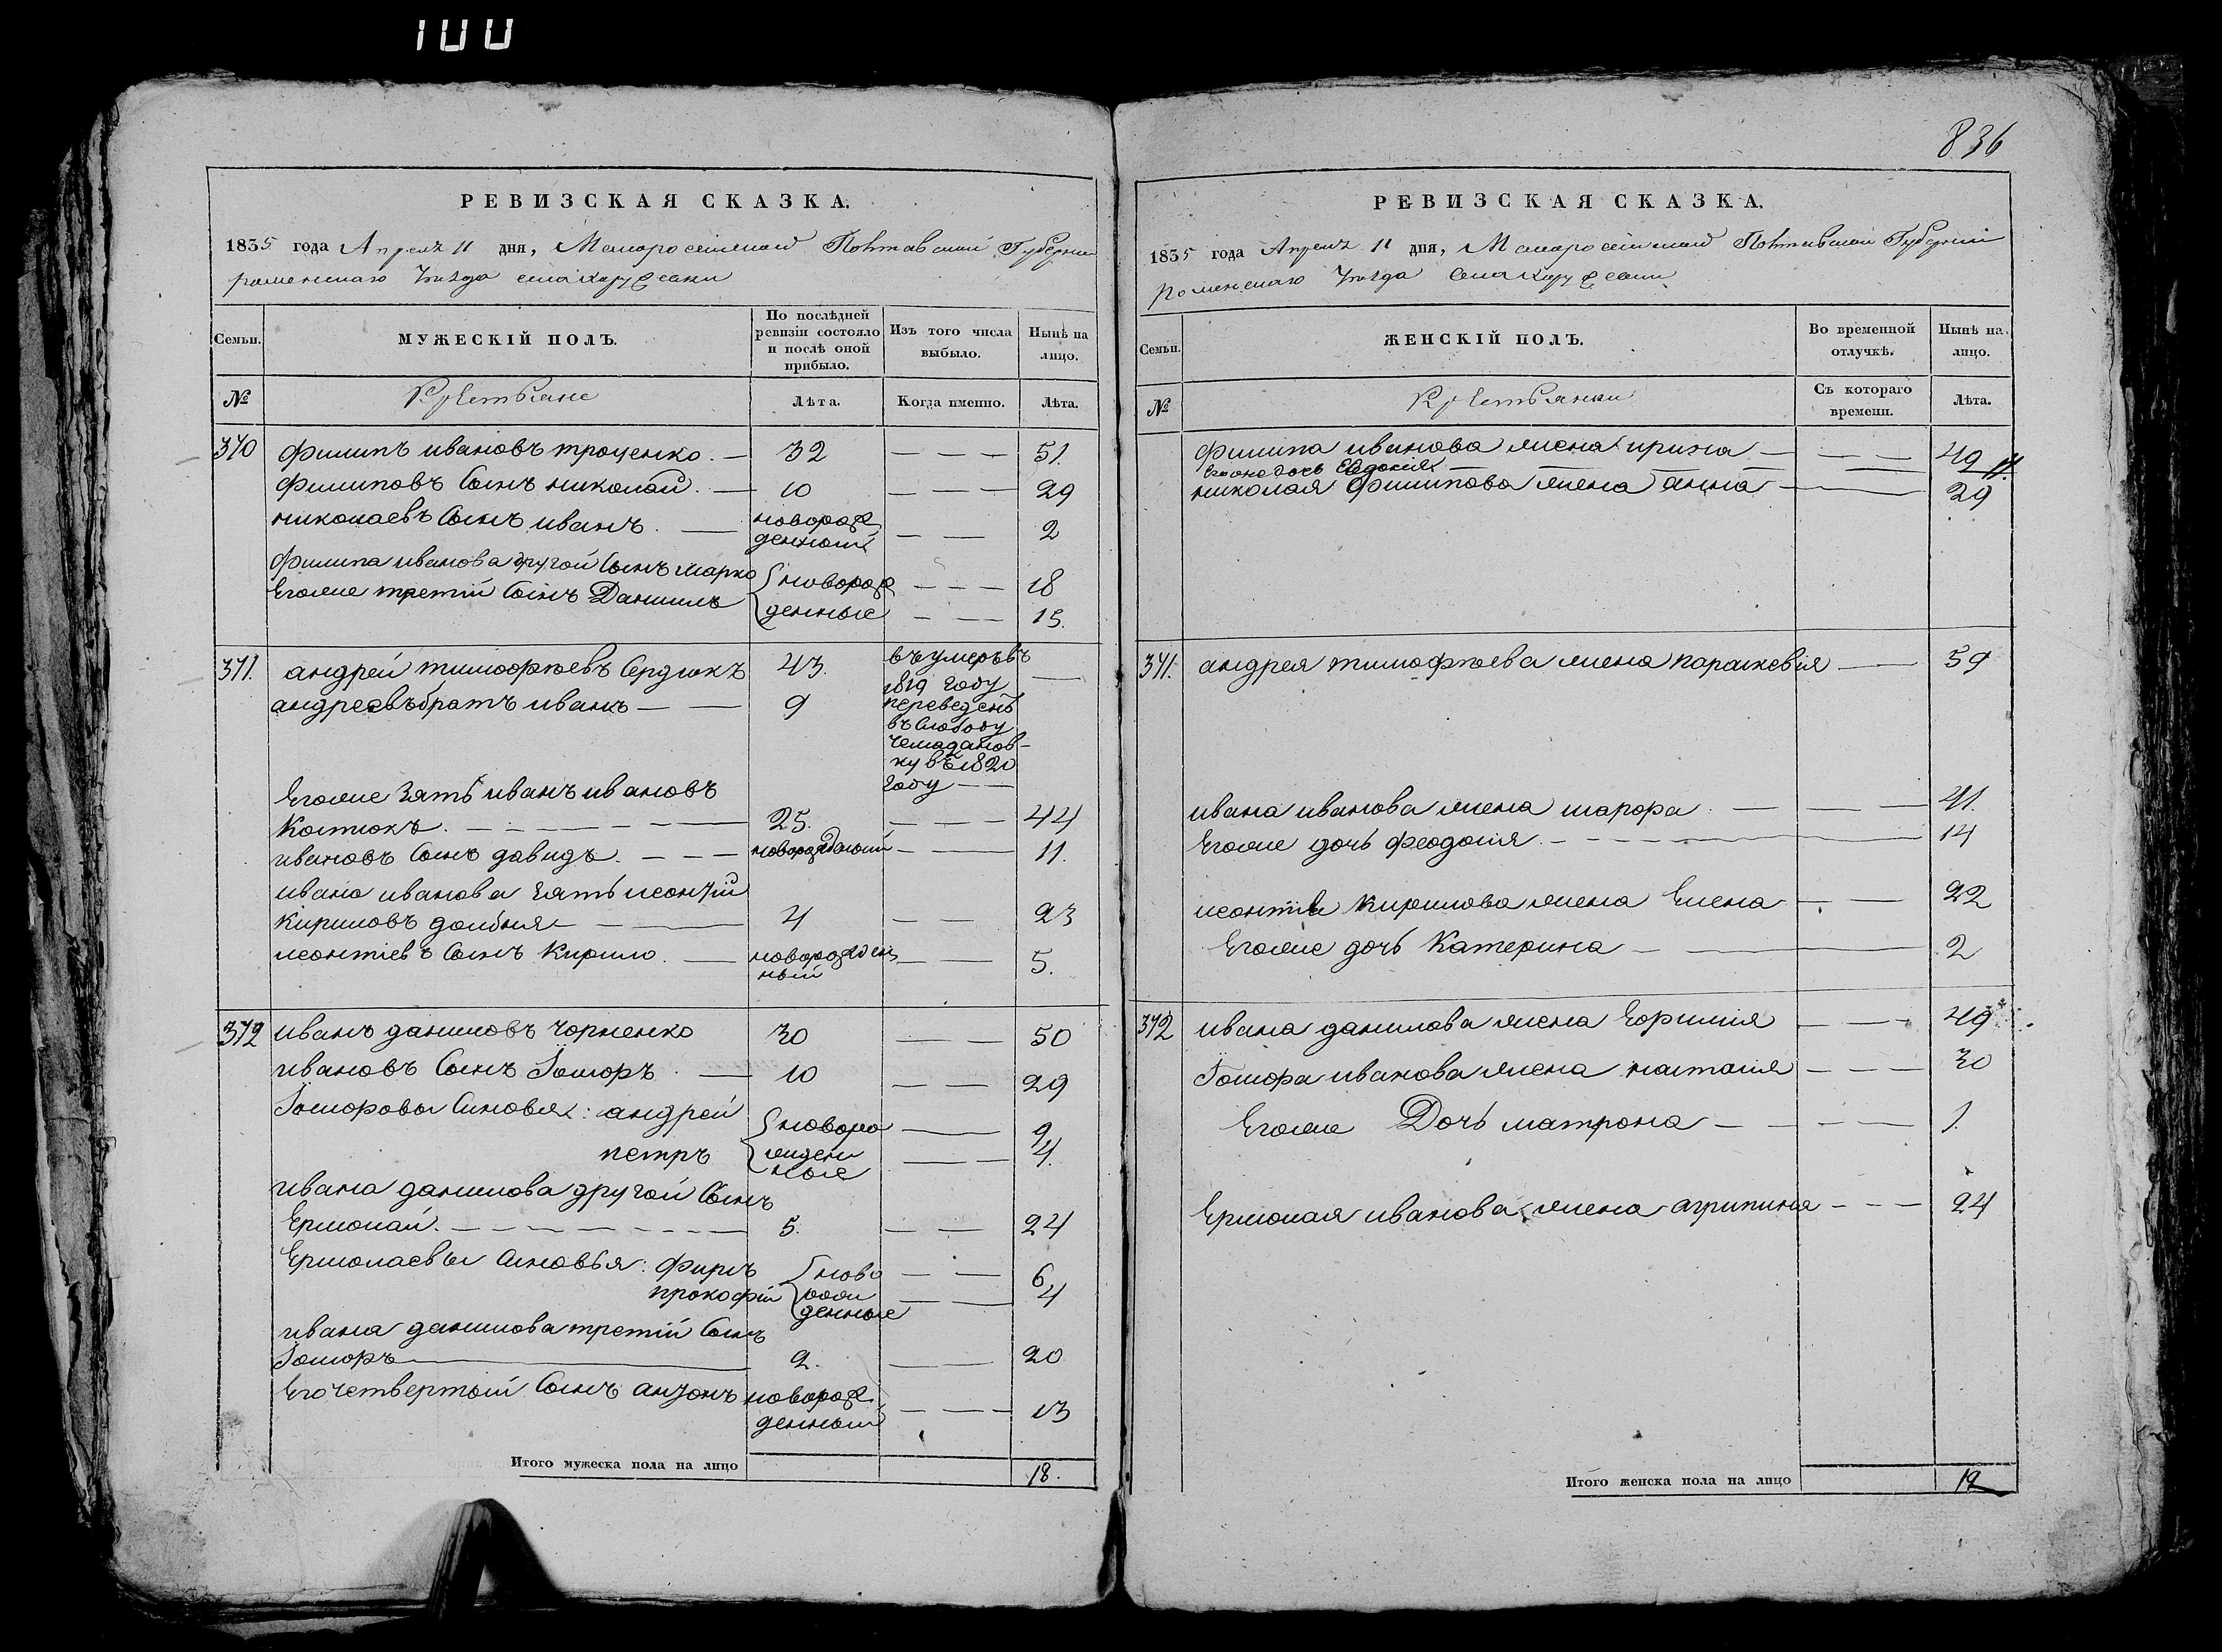 100
836
РЕВИЗСКАЯ СКАЗКА.
1835 года Апреля 11 дня, Малоросейской Полтавской Губернии
роменскаго Уезда села
Семьи. МУЖЕСКІЙ ПОЛЪ. По послѣдней ревизіи состояло и послѣ оной прибыло. Изъ того числа выбыло. Нынѣ на лицо.
№ Крестьяне Лѣта. Когда именно. Лѣта.
370 филипъ ивановъ троценко 32 51.
филиповъ сынъ николай 10 29
николаевъ сынъ иванъ новорож
денный 2
филипа иванова другой сынъ марко новорож 18
Егоже третій сынъ Даниилъ денные 15.
371. андрей тимофѣевъ Сердюкъ 43. въумеръвъ
1819 году
андреевъ братъ иванъ 9 переведенъ
въ слободу
чемадановку въ 1820
году
Егоже зять иванъ ивановъ
Костюкъ 25. 44
ивановъ сынъ давидъ новорожденый 11.
ивана иванова зять леонтій
кириловъ долбня 4 23
леонтіевъ сынъ Кирило новорожден
ный 5.
372 иванъ даниловъ чорненко 30 50
ивановъ сынъ Ѳіодоръ 10 29
синовья: андрей новоро 9
петръ жден
ные 4.
ивана данилова другой сынъ
Ермолай. 5. 24
Ермолаевы синовья: фирсъ ново 6
прокофій рож
денные 4
ивана данилова третій сынъ
2. 20
Его четвертый сынъ антонъ новорож
денный 13
Итого мужеска пола на лицо 18.
РЕВИЗСКАЯ СКАЗКА.
1835 года Апреля 11 дня, Малоросейской Полтавской Губерніи
роменскаго Уезда села
Семьи. ЖЕНСКІЙ ПОЛЪ. Во временной отлучкѣ. Нынѣ на лицо.
№ Крестьянки Съ котораго времени. Лѣта.
филипа иванова жена ирина 49
Егоже дочь Евдокия 11.
николая филипова жена анна 29
371. андрея тимофѣева жена параскевія 59
ивана иванова жена 41.
Егоже дочь феодосія 14
леонтия кирилова жена Елена 22
Егоже дочь Катерина 2
372 ивана данилова жена Ефимия 49
иванова жена настасия 30
Егоже Дочь матрона 1.
Ермолая иванова жена агрипина 24
Итого женска пола на лицо 12